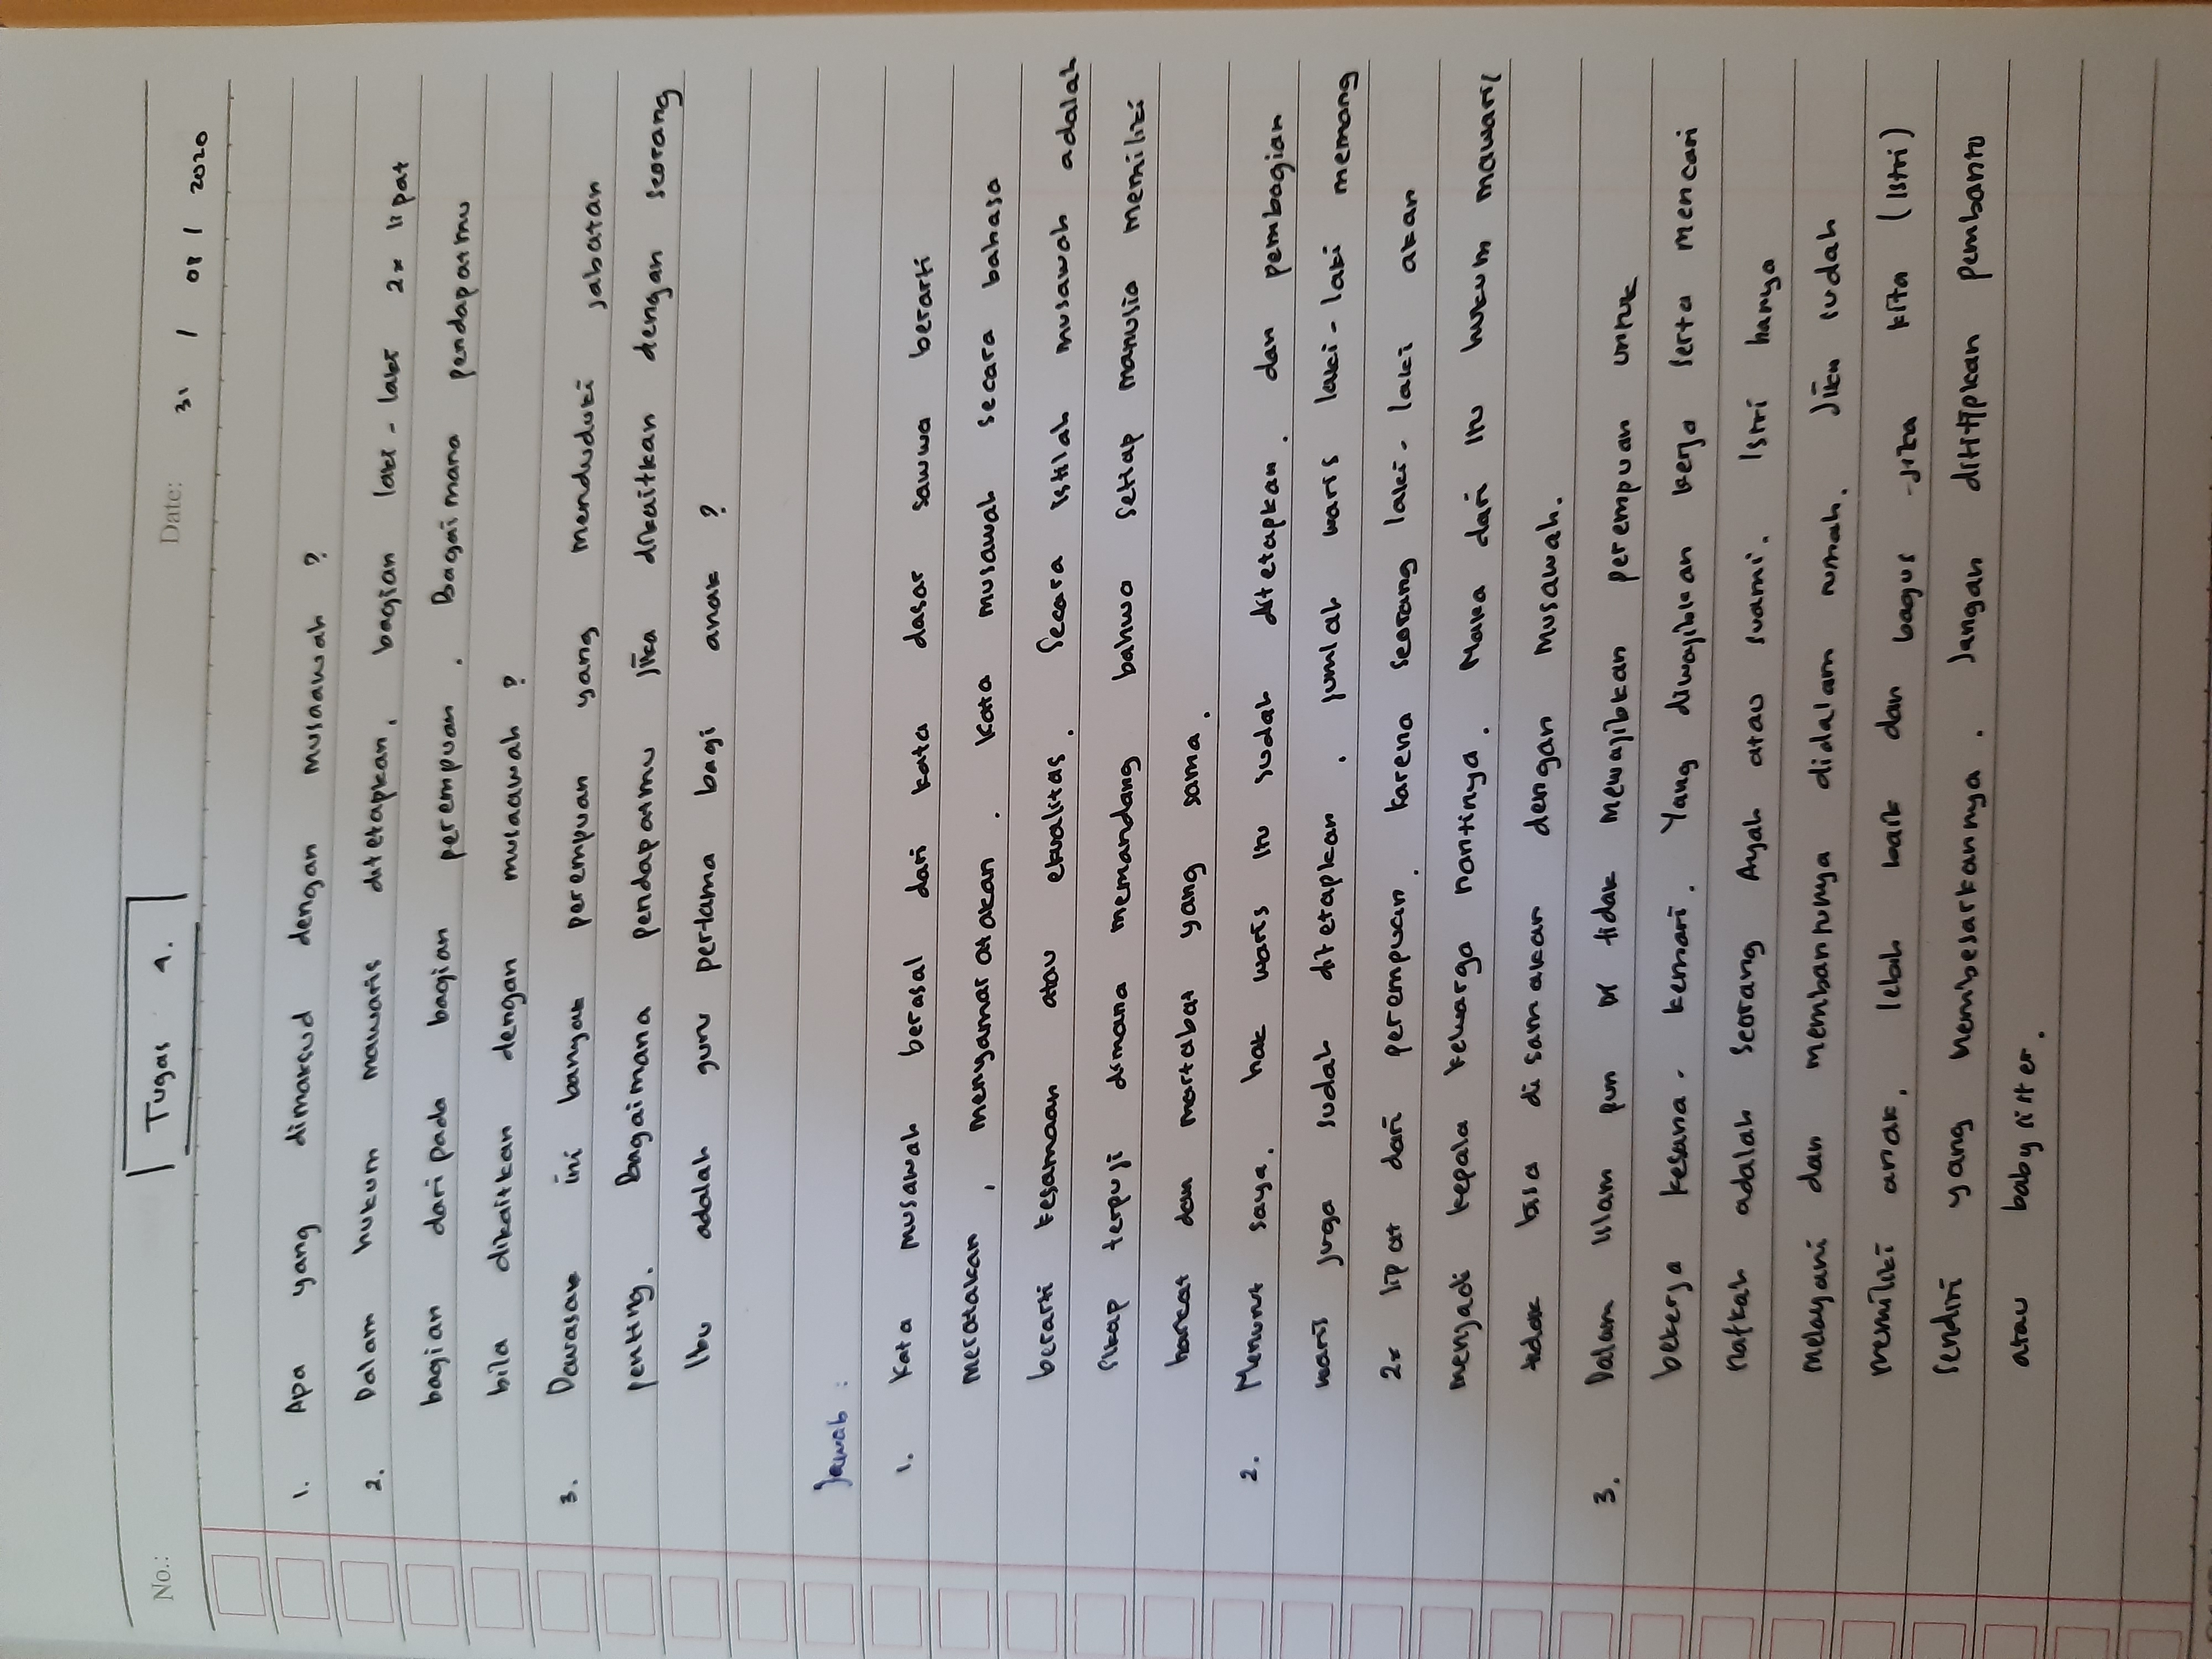 No.:
Tugas 1.
Date: 31 / 08 / 2020
1. Apa yang dimaksud dengan musaawah ?
2. Dalam hukum mawaris ditetapkan, bagian laki-laki 2x lipat
bagian daripada bagian perempuan. Bagaimana pendapatmu
bila dikaitkan dengan musaawah ?
3. Dewasak ini banyak perempuan yang menduduki jabatan
penting. Bagaimana pendapatmu jika dikaitkan dengan seorang
Ibu adalah guru pertama bagi anak ?
Jawab :
1. Kata musawah berasal dari kata dasar sawwa berarti
meratakan, menyamaratakan. Kata musawah secara bahasa
berarti kesamaan atau ekualitas. Secara istilah musawah adalah
sikap terpuji dimana memandang bahwa setiap manusia memiliki
harkat dan martabat yang sama.
2. Menurut saya, hak waris itu sudah ditetapkan, dan pembagian
waris juga sudah ditetapkan, jumlah waris laki-laki memang
2x lipat dari perempuan. Karena seorang laki-laki akan
menjadi kepala keluarga nantinya. Maka dari itu hukum mawaris
tidak bisa disamakan dengan musawah.
3. Dalam Islam pun tidak mewajibkan perempuan untuk
bekerja kesana-kemari. Yang diwajibkan kerja serta mencari
nafkah adalah seorang Ayah atau suami. Istri hanya
melayani dan membantunya didalam rumah. Jika sudah
memiliki anak, lebih baik dan bagus jika kita (istri)
sendiri yang membesarkannya. Jangan dititipkan pembantu
atau babysister.